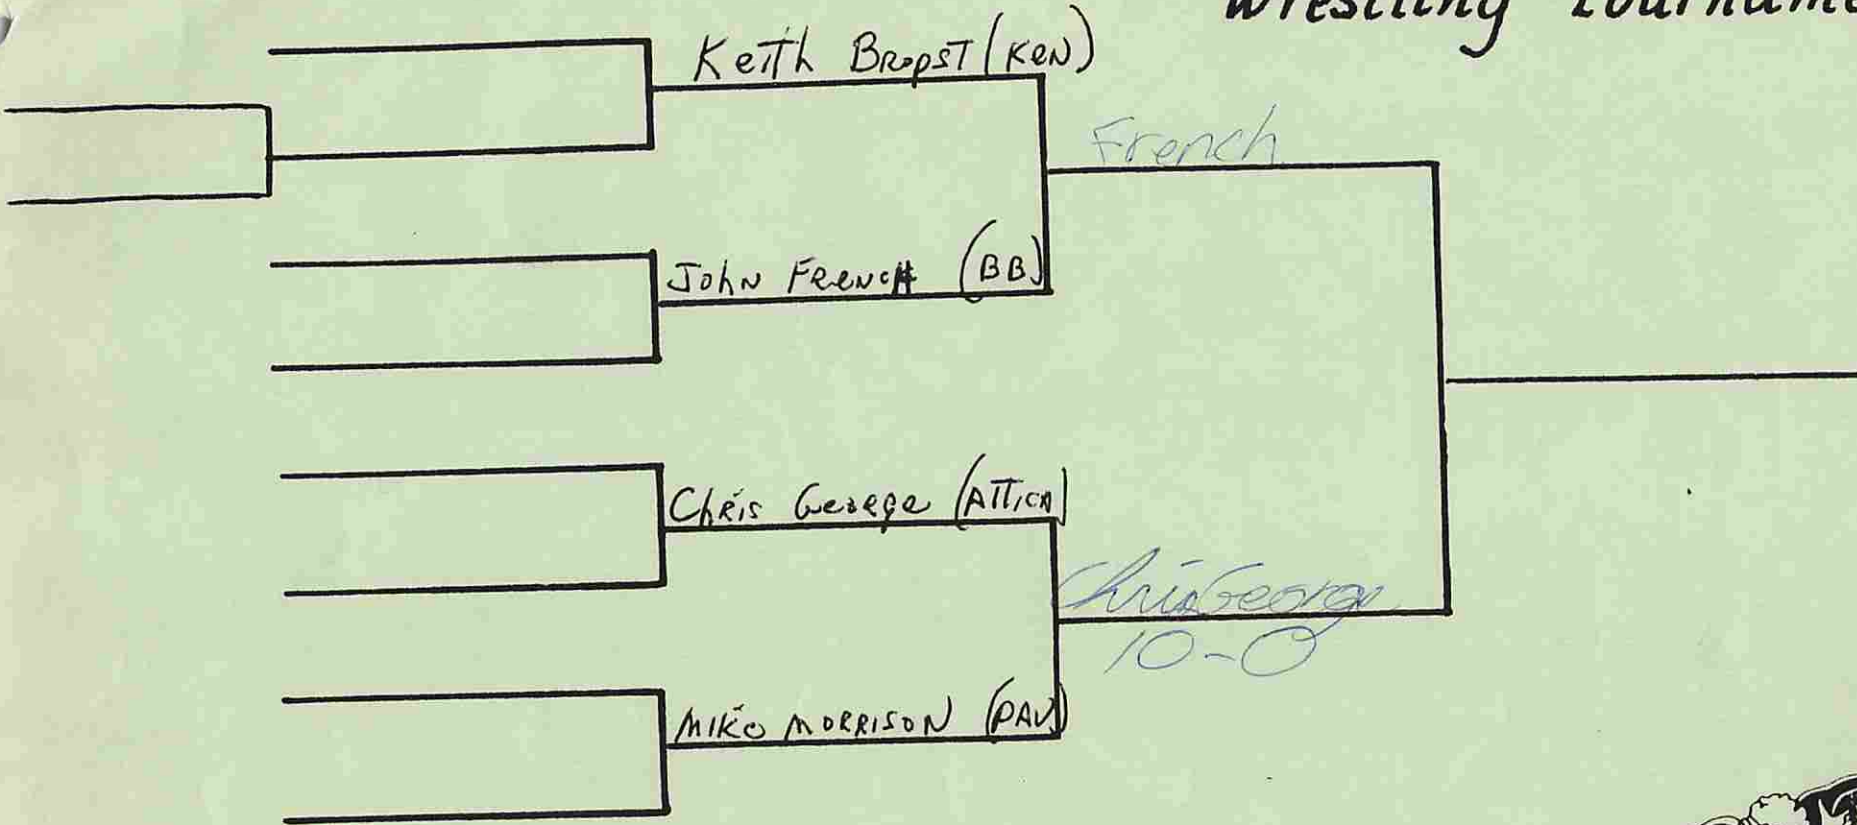 Wrestling Tourname
Keith Bropst (Ken)
French
John French (BB)
Chris George (Attica)
Chris George
10-0
Mike Morrison (PAV)